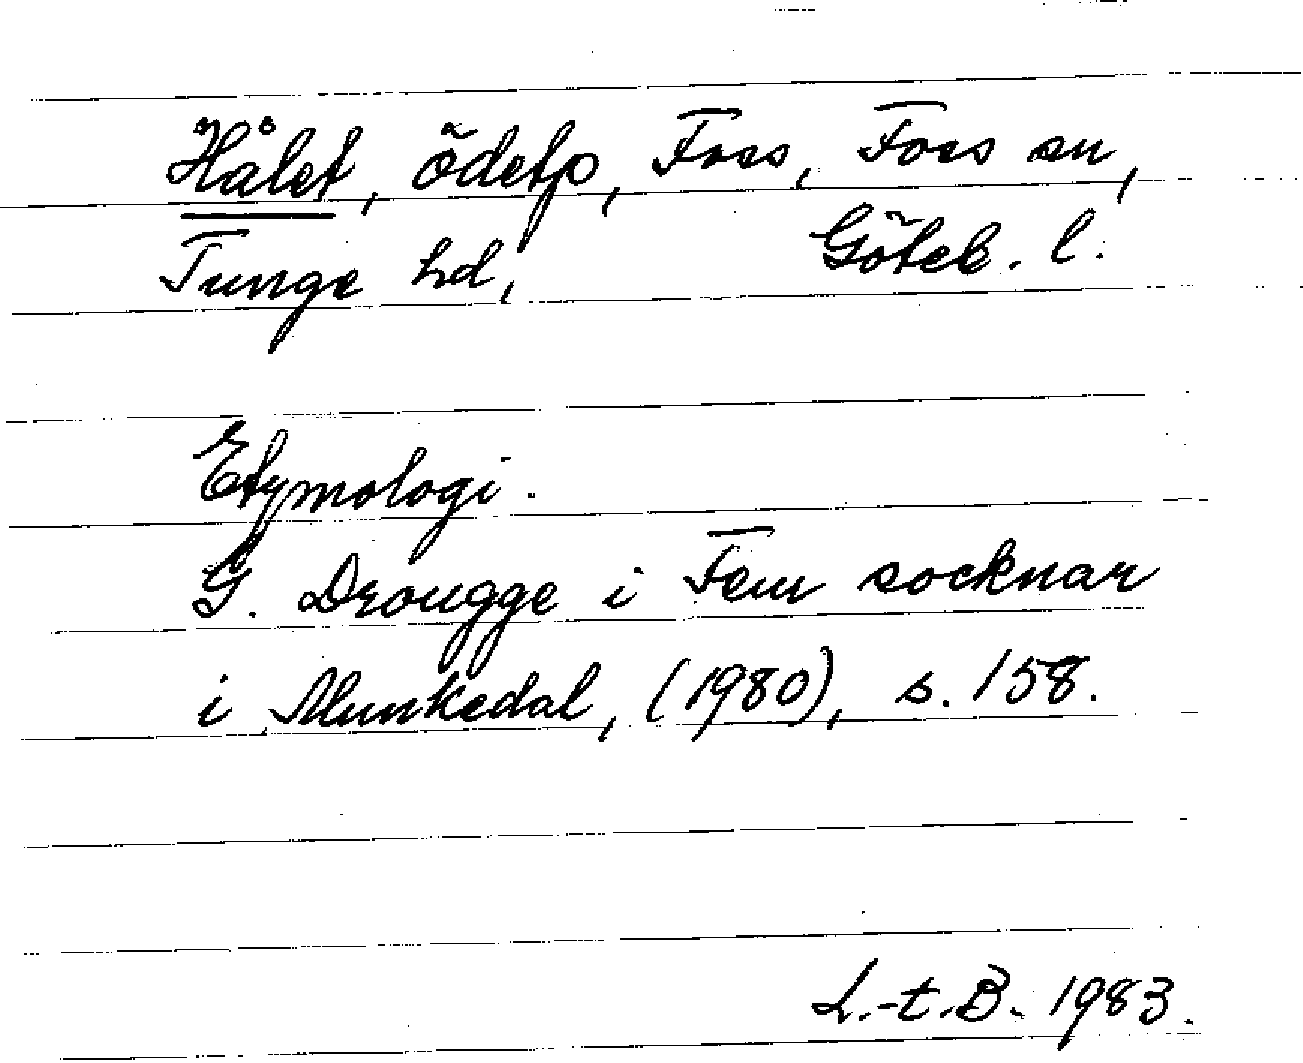 Hålet, ödetp, Foss, Foss sn,
Tunge hd, Göteb. l.
Etymologi.
G. Drougge i Fem socknar
i Munkedal, (1980), s. 158.
L.-t.B. 1983.